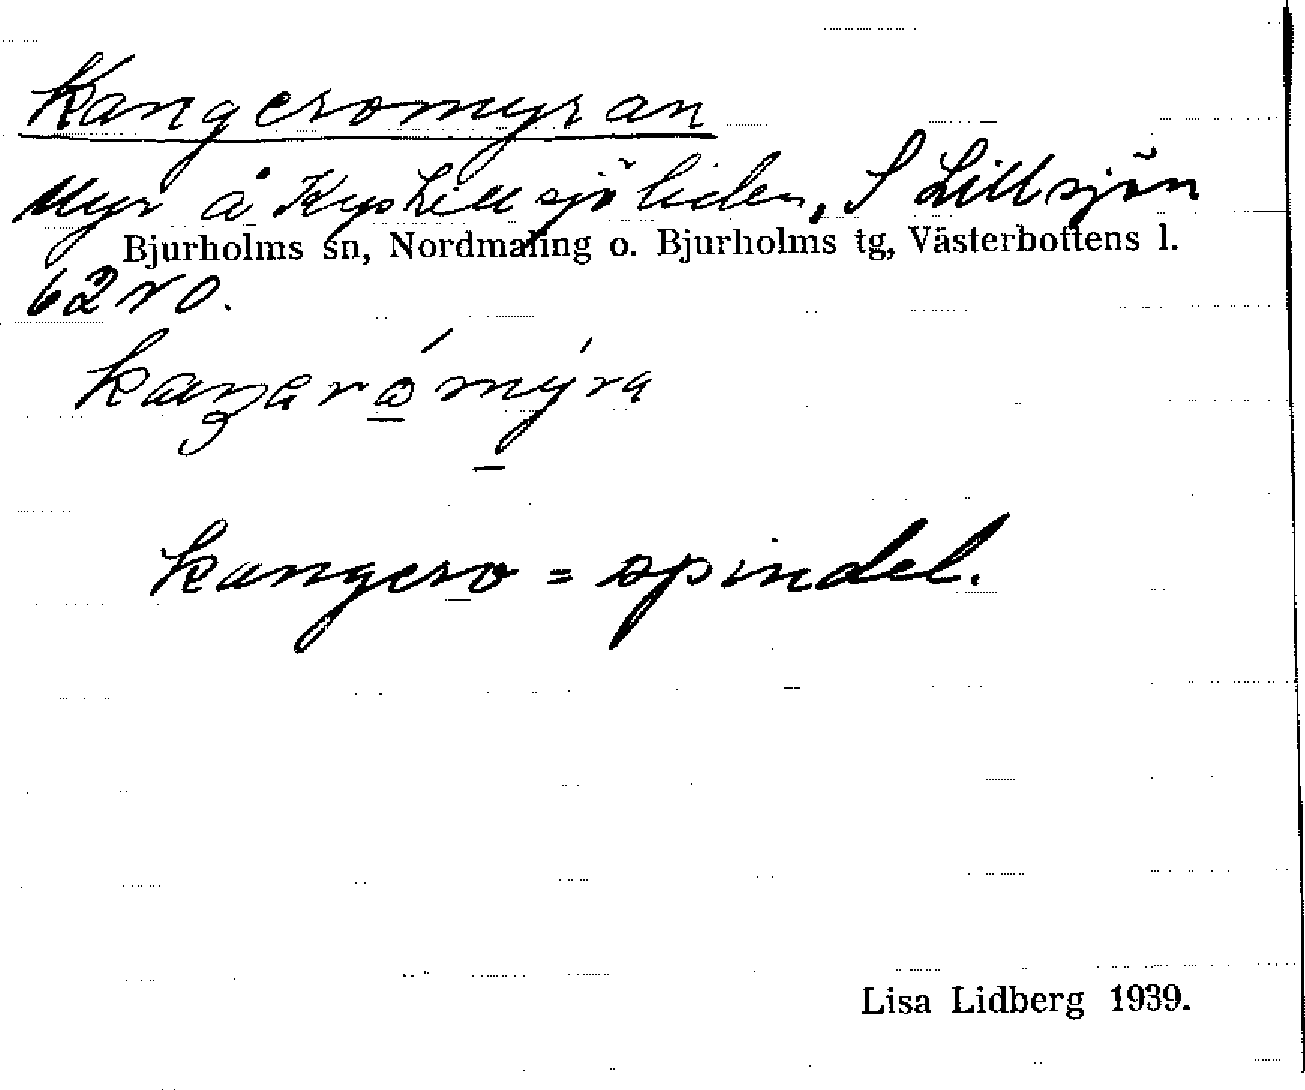 Kangeromyran
Myr å Kys Lillsjöliden, S Lillsjön
Bjurholms sn, Nordmaling o. Bjurholms tg, Västerbottens l.
62 v o.
kaŋarǻmýra
kangero = spindel.
Lisa Lidberg 1939.